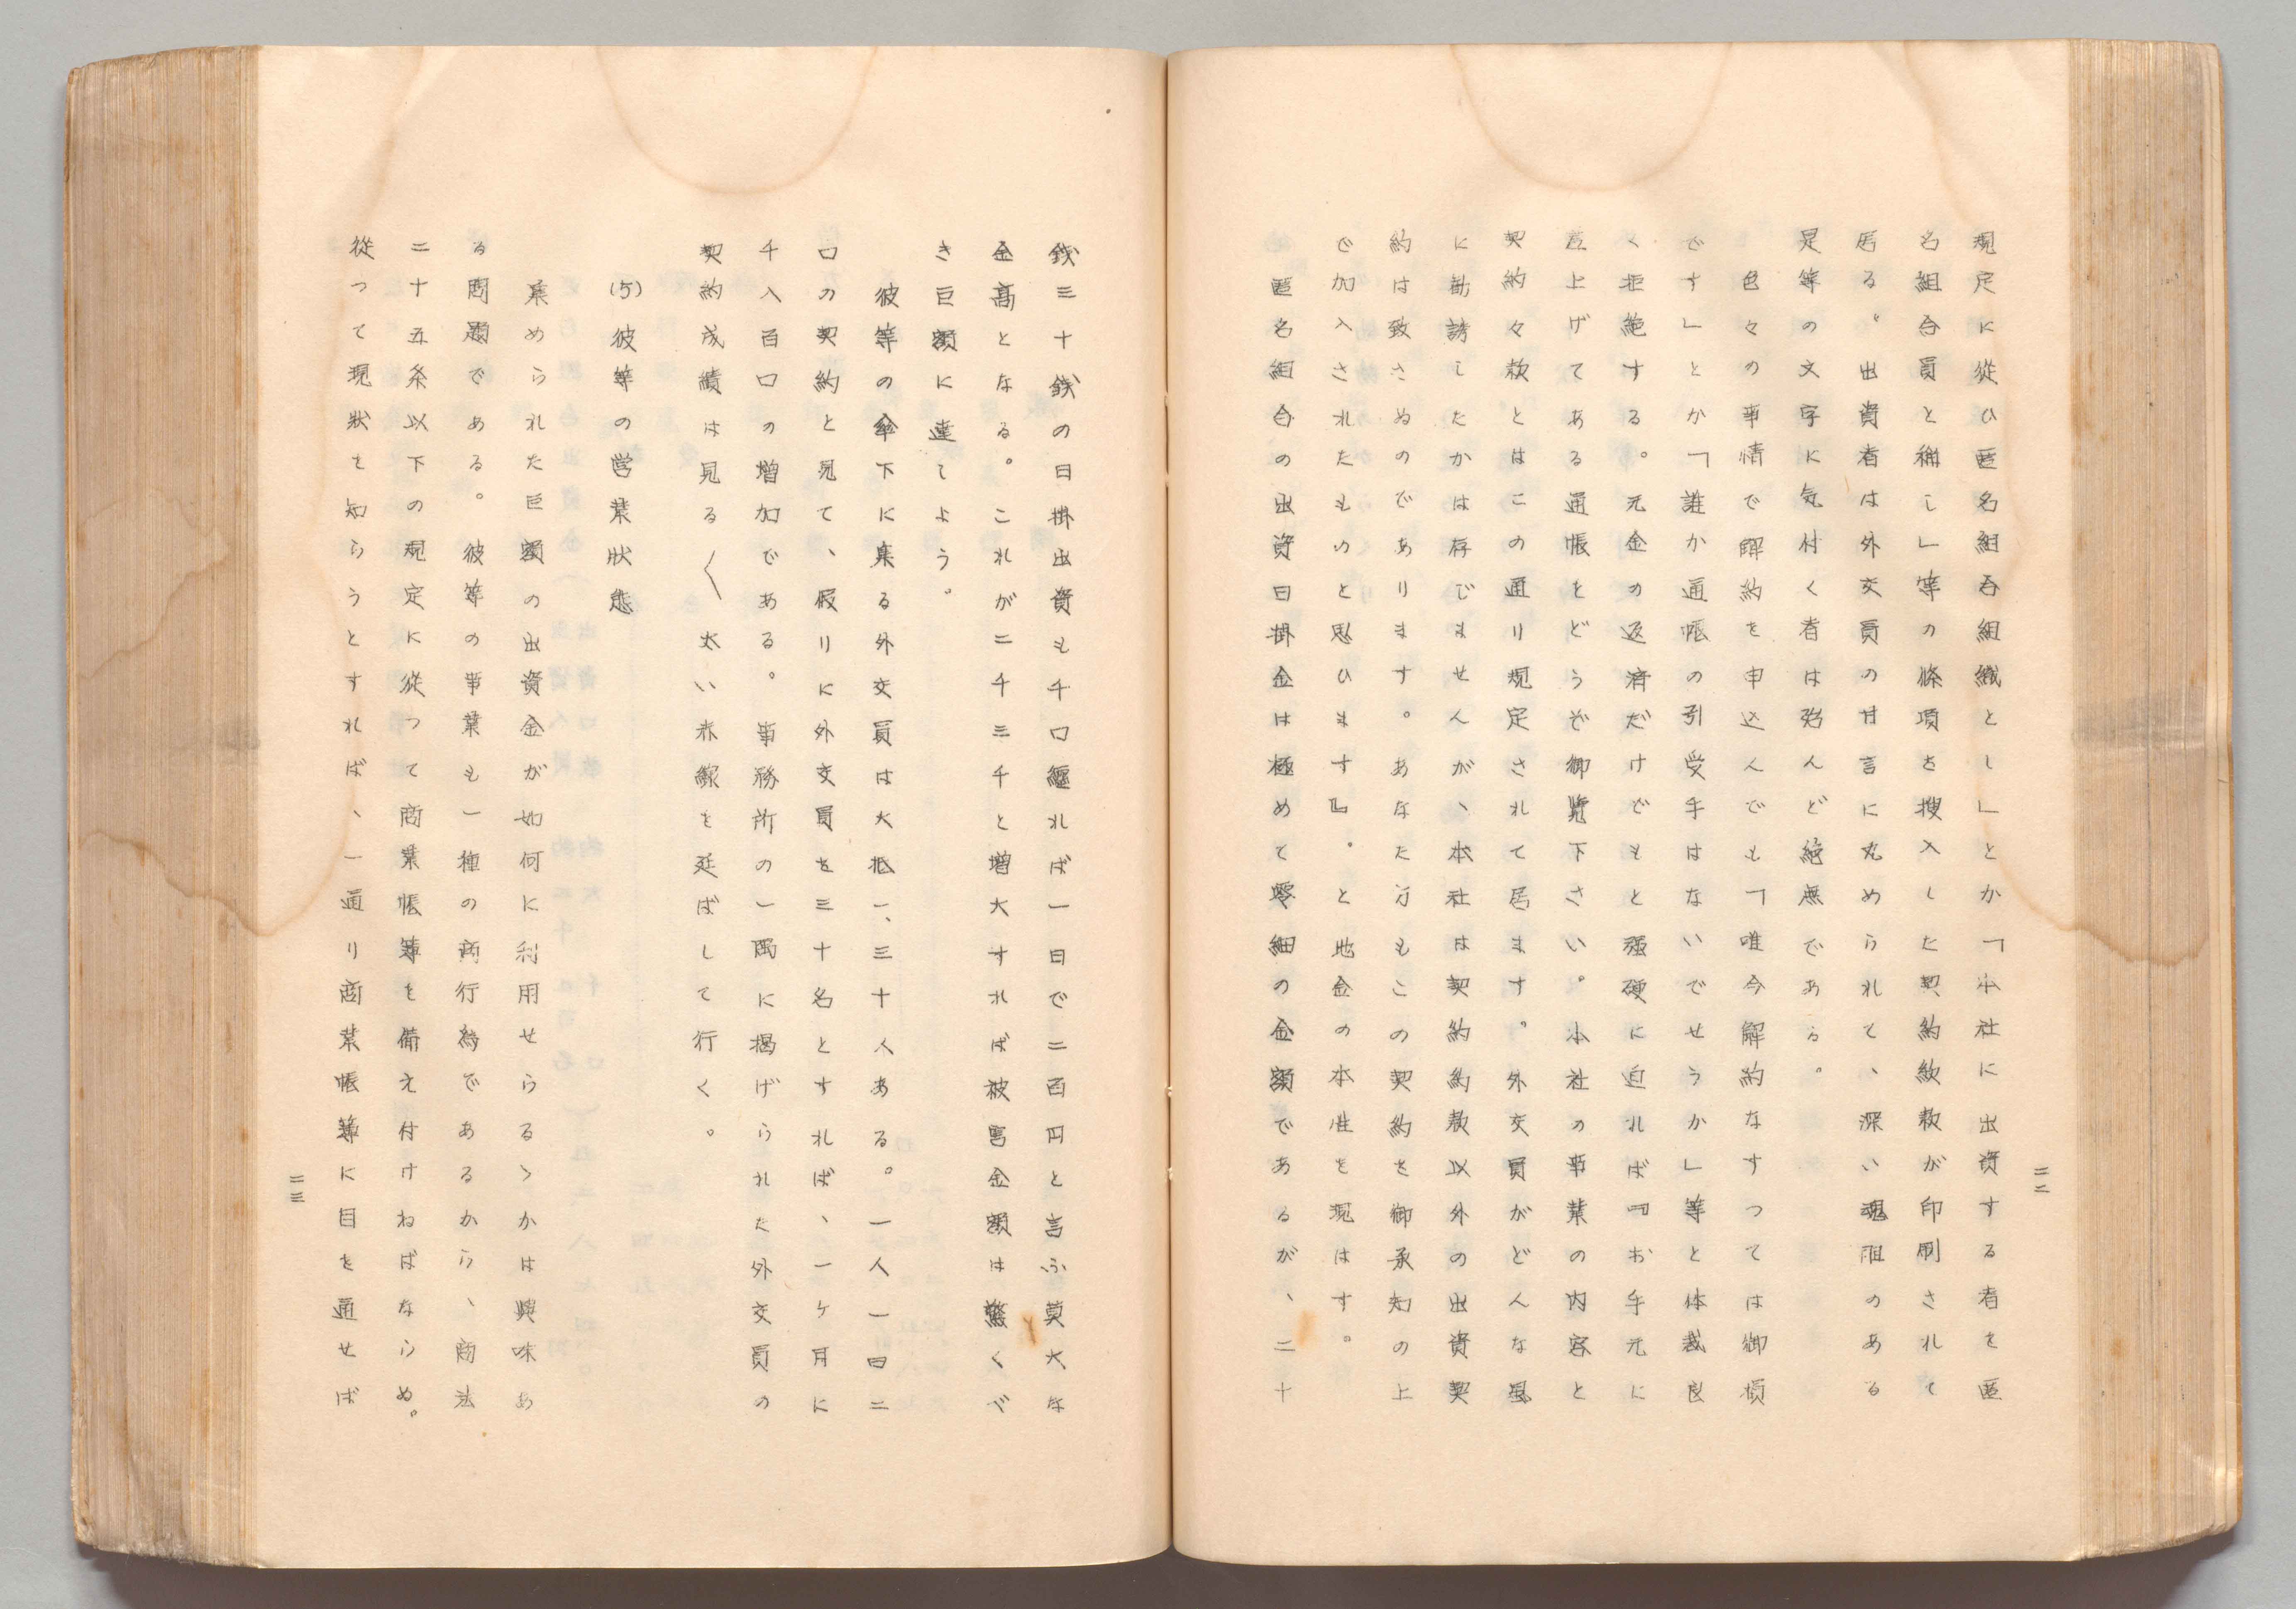 二二
規定に從ひ匿名組合組織とし」とか「本社に出資する者を匿
名組合員と稱し」等の條項を挿入した契約約款が印刷されて
居る。出資者は外交員の甘言に丸められて、深い魂胆のある
是等の文字に気付く者は殆んど絶無である。
色々の事情で解約を申込んでも「唯今解約なすつては御損
です」とか「誰か通帳の引受手はないでせうか」等と体裁良
く拒絶する。元金の返済だけでもと强硬に迫れば『お手元に
差上げてある通帳をどうぞ御覽下さい。本社の事業の内容と
契約々款とはこの通り規定されて居ます。外交員がどんな風
に勧誘したかは存じませんが、本社は契約約款以外の出資契
約は致さぬのであります。あなた方もこの契約を御承知の上
で加入されたものと思ひます』。と地金の本性を現はす。
匿名組合の出資日掛金は極めて零細の金額であるが、二十
銭三十銭の日掛出資も千口纒れば一日で二百円と言ふ莫大な
金高となる。これが二千三千と増大すれば被害金額は驚くべ
き巨額に達しよう。
彼等の傘下に集る外交員は大抵一、三十人ある。一人一日二
口の契約と見て、仮りに外交員を三十名とすれば、一ケ月に
千八百口の増加である。事務所の一隅に掲げられた外交員の
契約成績は見る〱太い赤線を延ばして行く。
(5)彼等の営業狀態
集められた巨額の出資金が如何に利用せらるゝかは興味あ
る問題である。彼等の事業も一種の商行為であるから、商法
二十五条以下の規定に從つて商業帳簿を備え付けねばならぬ。
從つて現狀を知らうとすれば、一通り商業帳簿に目を通せば
二三